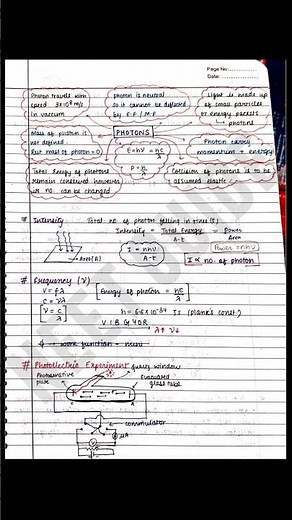 Page No:
Date:
Photon travels with
speed 3×10⁸ m/s
in vaccum
photon is neutral
so it cannot be deflected
by E.F / M.F
Light is made up
of small particles
or energy packets
photons
Mass of photon is
not defined
Rest mass of photon = 0
PHOTONS
E = hν = hc/λ
P = h/λ
Photon carry
momentum + energy
Total Energy of photons
remain conserved however
no. can be changed
Collision of photons is to be
assumed elastic
# Intensity
Total no. of photon falling in time (s)
Intensity = Total Energy / A·t = Power / Area
I = nhν / A·t
Power = nhν
I ∝ no. of photon
Area(A)
# Frequency (ν)
V = fλ
C = νλ
ν = c/λ
[Energy of photon = hc/λ]
h = 6.6 × 10⁻³⁴ Js (plank's const.)
V I B G Y O R
λ↑ ν↓
ϕ → work function = min
# Photoelectric Experiment
Photosensitive
plate
quartz window
Evacuated
glass tube
C
A
commutator
μA
V